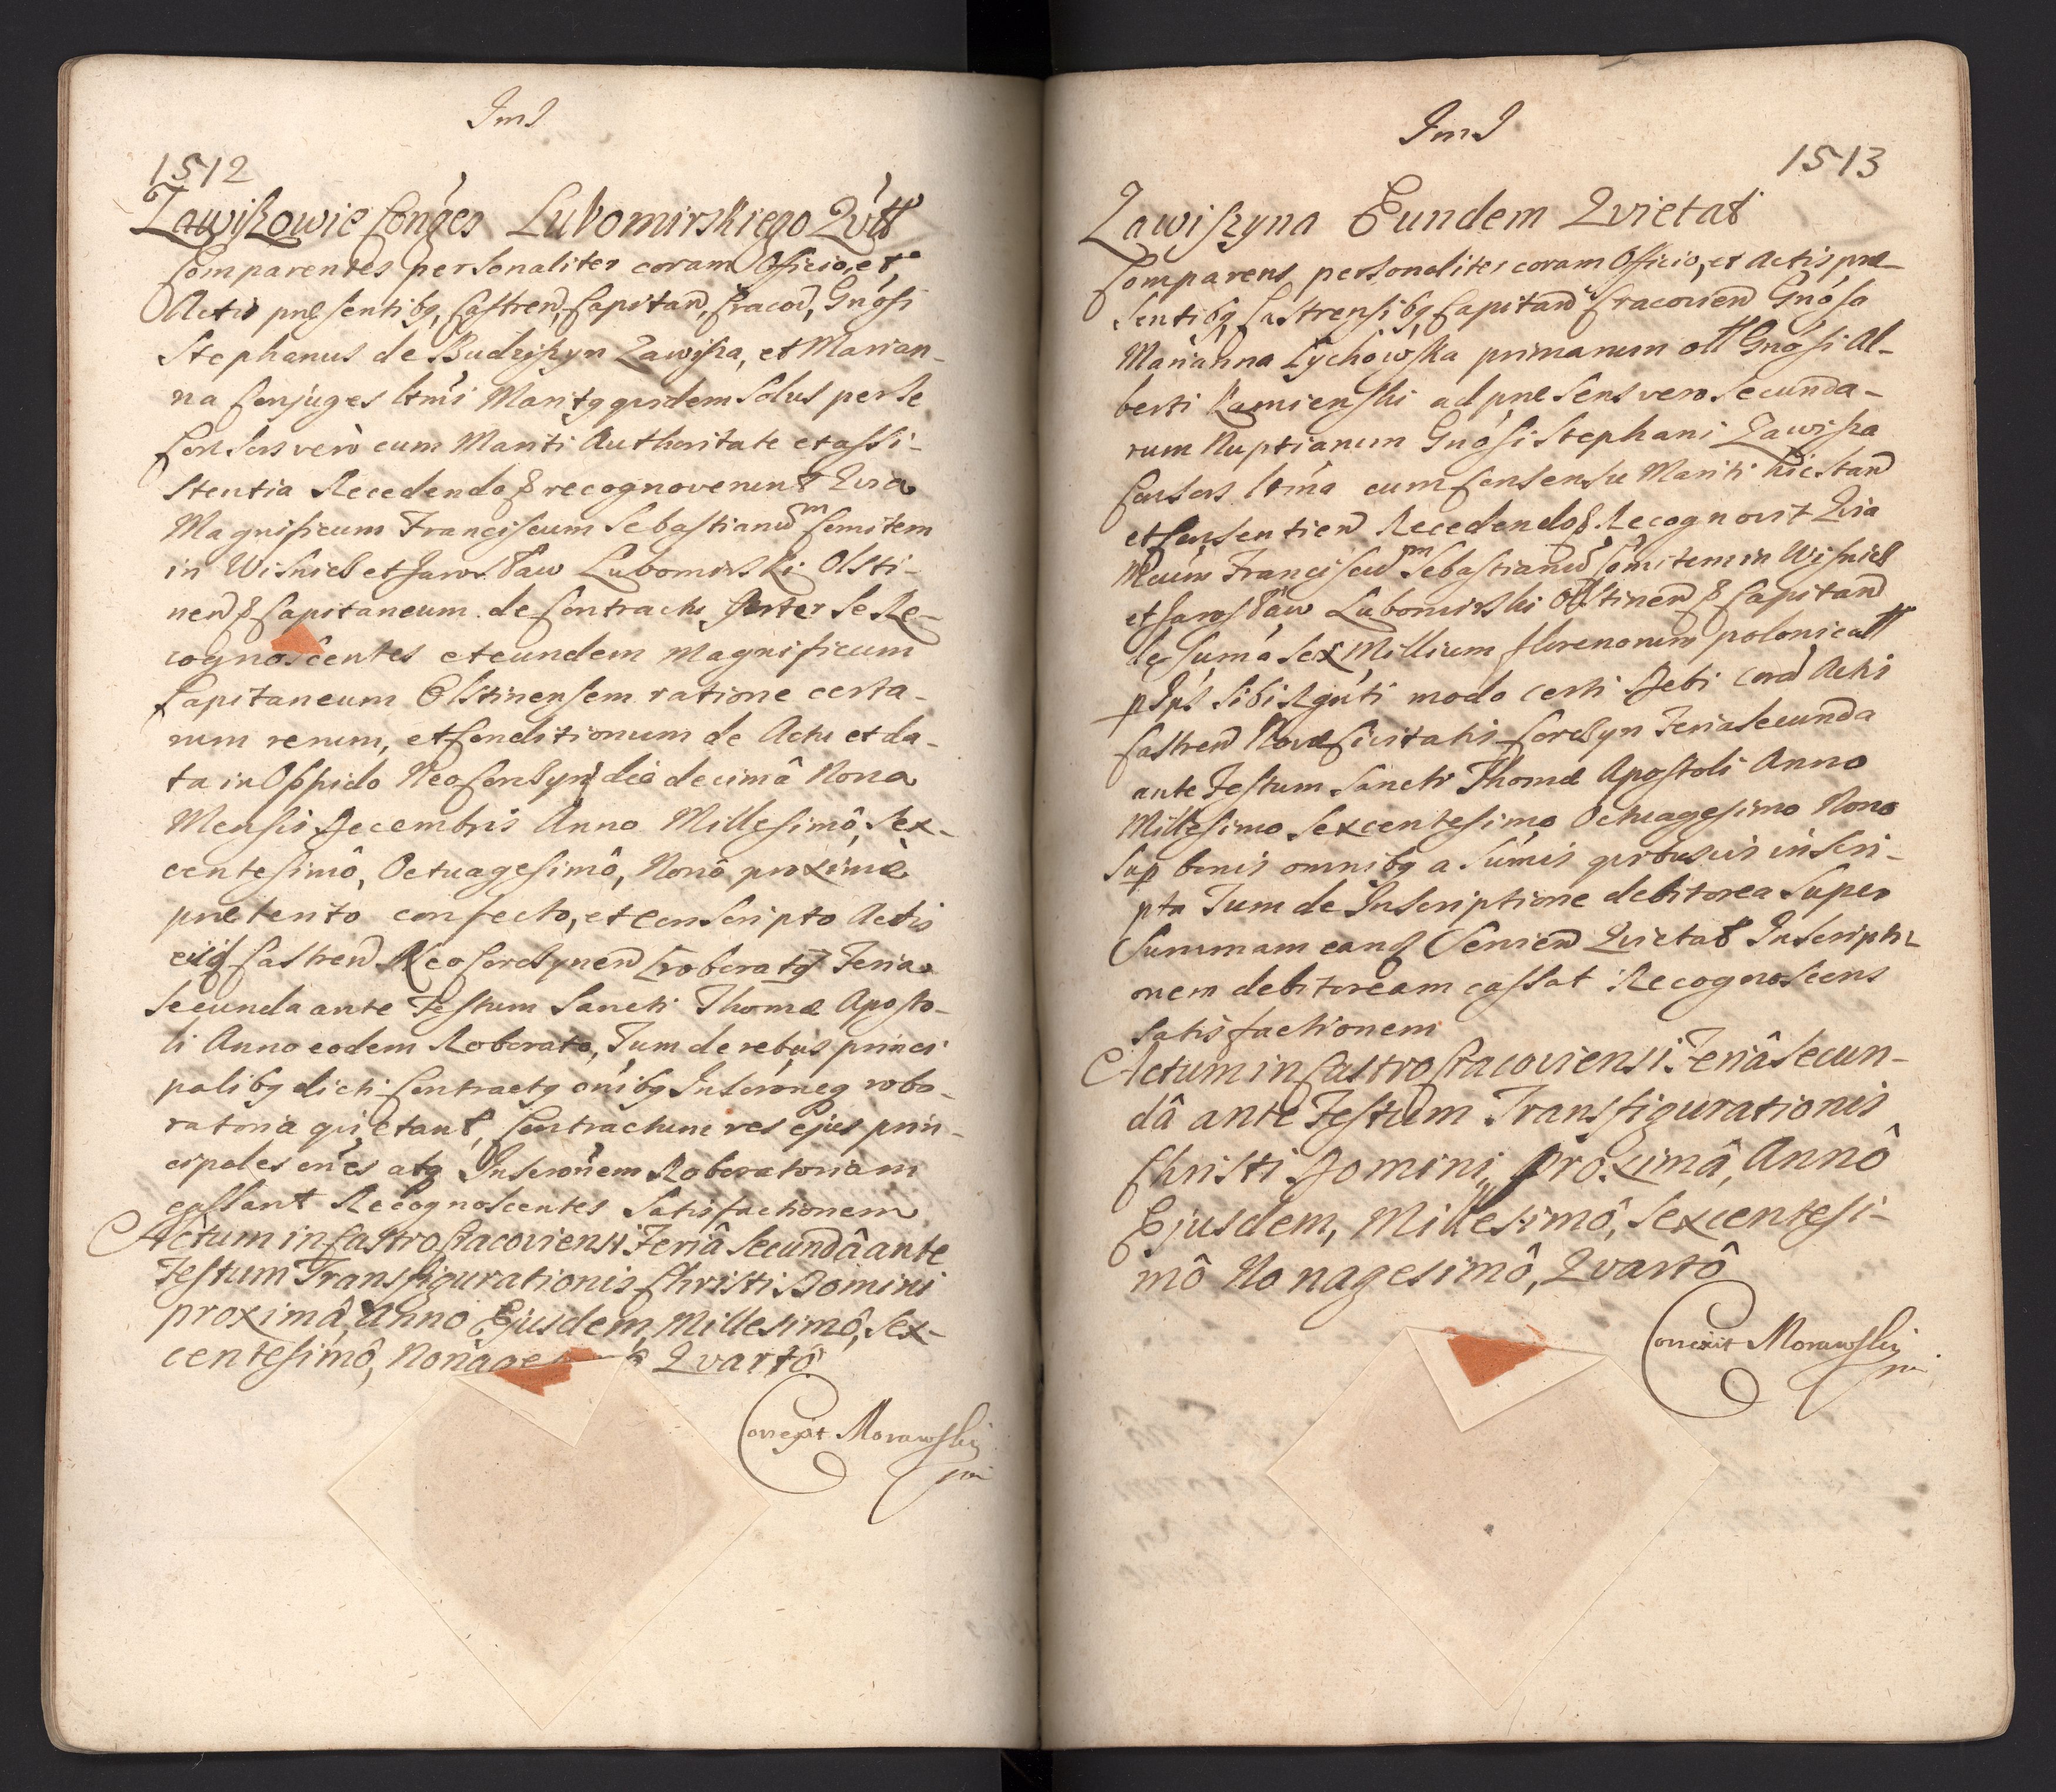 ImI
1512
Zawiszowie Conges Lubomirskiego Qvtt
Comparentes personaliter coram Officio, et
Actis praesentibq, Castren, Capitan, Cracov, Gnosi
Stephanus de Budziszyn Zawisza, et Marian-
na Conjuges ltmi Maritq quidem Solus per se
Consors vero cum Mariti Authoritate et assi-
stentia Recedendo & recognoverunt Quia
Magnificum Franciscum Sebastianum Comitem
in Wisnicz et Jarosław Lubomirski Olsti-
nen & Capitaneum de Contractu Inter se Re-
cognoscentes et eundem Magnificum
Capitaneum Olstinensem ratione certa-
rum rerum, et Conditionum de Actu et da-
ta in Oppido Neo Corczyn die decimâ Nona
Mensis Decembris Anno Millesimô, Sex-
centesimô, Octuagesimô, Nonô proximè
praetento confecto, et conscripto Actis
eiq Castren Neo Corczynen Croboratq Feria
Secunda ante Festum Sancti Thomae Aposto-
li Anno eodem Roborato, Tum de rebus princi
palibq dicti Contractq onibq Inscroneq robo-
ratoria quietant, Contractum res ejus prin-
cipales ones atq Inscronem Roboratoriam
cassant Recognoscentes Satisfactionem
Actum in Castro Cracoviensi Feriâ Secundâ ante
Festum Transfigurationis Christi Domini
proximâ, Anno Ejusdem, Millesimô, Sex-
centesimô, Nonage Quartô
Correxit Morawski
mp
ImI
1513
Zawiszyna Eundem Quietat
Comparens personaliter coram Officio, et Actis prae-
sentibq Castrensibq Capitan Cracovien Gnosa
Marianna Zychowska primarum ott Gnosi Al-
berti Kamienski ad praesens vero Secunda-
rum Nuptiarum Gnosi Stephani Zawisza
Consors ltma cum Consensu Mariti hic stan
et Consentien Recedendo & Recognovit Quia
Mcum Franciscum Sebastianum Comitem in Wisnicz
et Jarosław Lubomirski Olstinen & Capitan
de Suma Sex Millium florenorum polonicatt
p Ips sibi Rguti modo certi Debi cora Actis
Castren Novae Civitatis Corczyn Feria Secunda
ante Festum Sancti Thomae Apostoli Anno
Millesimo Sexcentesimo Octuagesimo Nono
Sup bonis omnibq a Sumis quibusvis inscri-
pta Tum de Inscriptione debitorea Super
Summam eand Servien Quietat Inscripti-
onem debitoream cassat Recognoscens
Satisfactionem
Actum in Castro Cracoviensi Feriâ Secun-
dâ ante Festum Transfigurationis
Christi Domini, proximâ, Annô
Ejusdem, Millesimô, Sexcentesi-
mô Nonagesimô, Quartô
Correxit Morawski
mp